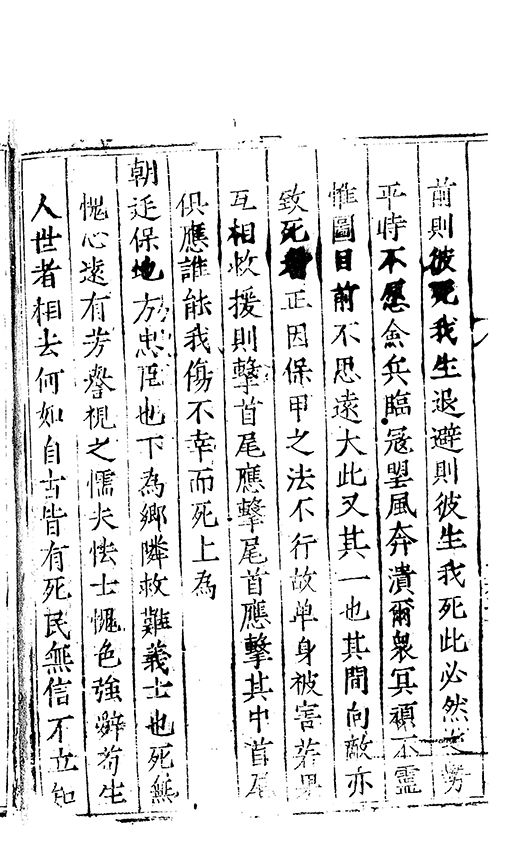 前則彼死我生退避則彼生我死此必然之勢
平時不愿僉兵臨寇望風奔潰爾衆冥頑不靈
惟圖目前不思遠大此又其一也其間向敵亦
致死者正因保甲之法不行故单身被害若果
互相救援則擊首尾應擊尾首應擊其中首尾
俱應誰能我傷不幸而死上為
朝廷保地方忠臣也下為鄉隣救難義士也死無
愧心遠有芳譽視之懦夫怯士愧色強辭苟生
人世者相去何如自古皆有死民無信不立知